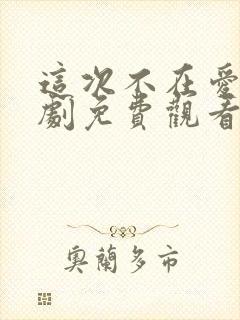 這次不在愛
劇免費觀看
奧蘭多市